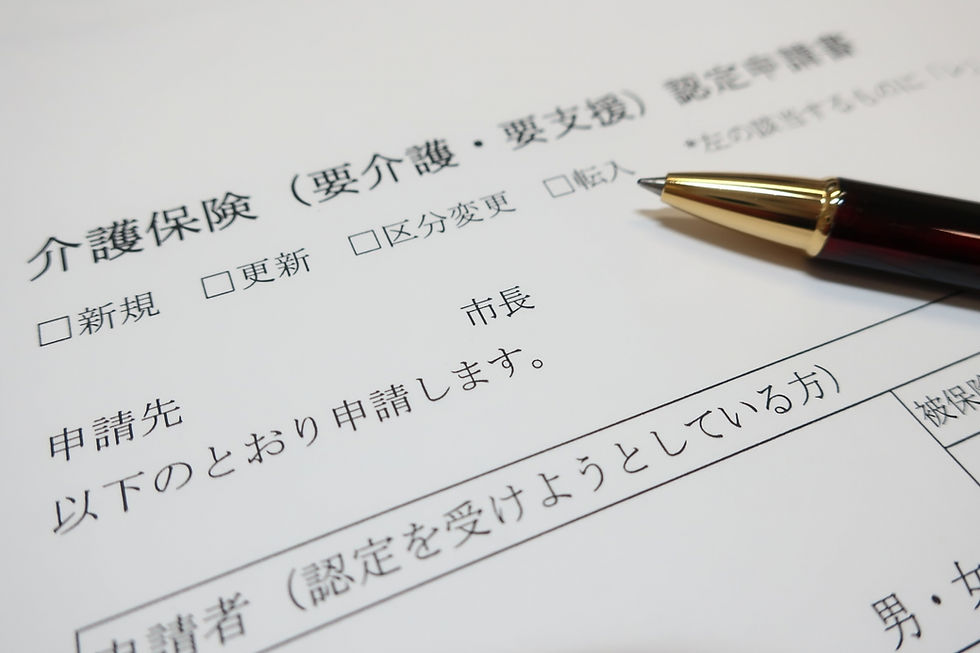 介護保険（要介護・要支援）認定申請書
□新規 □更新 □区分変更 □転入 *左の該当するものに「レ」
申請先 市長
以下のとおり申請します。
申請者（認定を受けようとしている方）
被保険
男・女